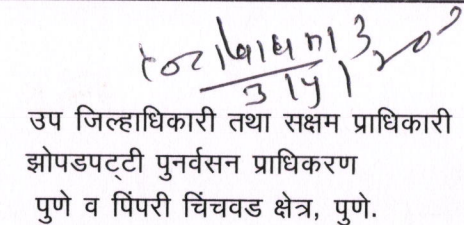 उप जिल्हाधिकारी तथा सक्षम प्राधिकारी
झोपडपट्टी पुनर्वसन प्राधिकरण
पुणे व पिंपरी चिंचवड क्षेत्र, पुणे.